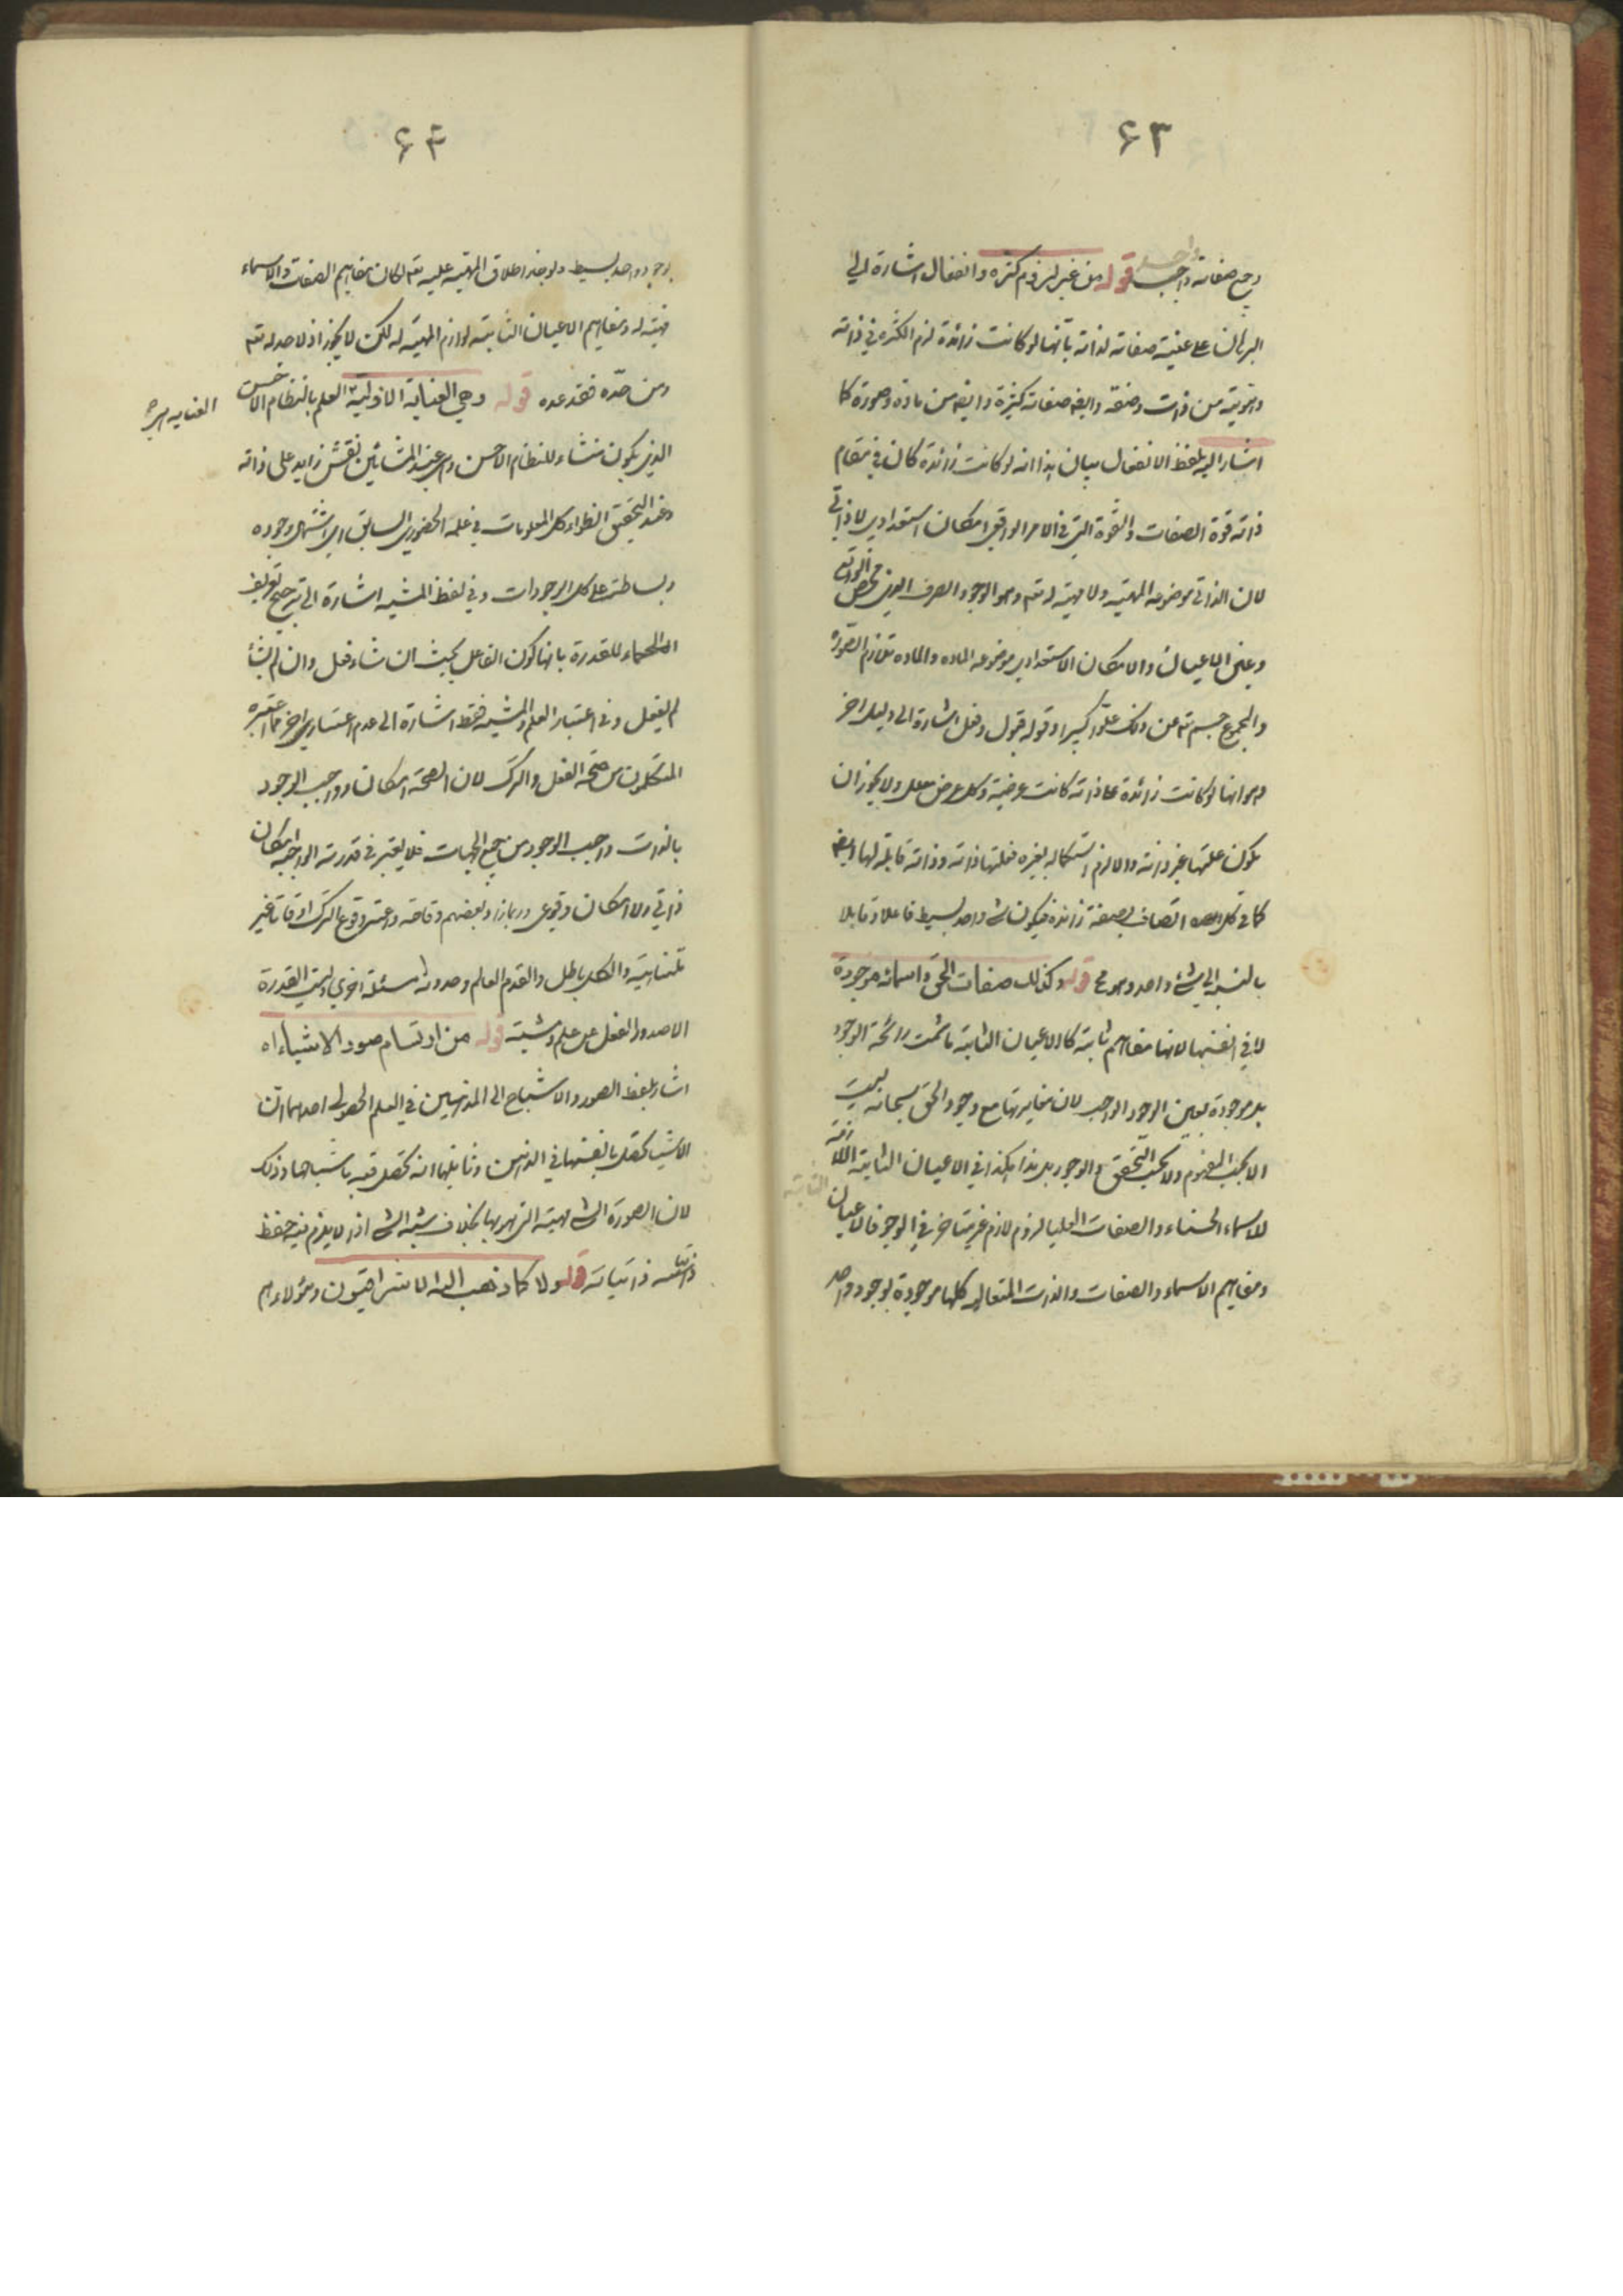 ٦٣
وجميع صفاته واجب قوله من غير لزوم كثرة وانفعال اشارة الى
البرهان على عينية صفاته لذاته بانها لو كانت زائدة لزم الكثرة في ذاته
واثنوتية من ذات وصفة وايضا صفاته كثيرة وايضا من مادة وصورة كما
اشار اليه بلفظ الانفعال بيان هذا انه لو كانت زائدة كان في مقام
ذاته قوة الصفات والقوة التي في الامر الواقعي امكان استعدادي لا ذاتي
لان الذاتي موضوعه المهية ولا مهية له تعم وهو الوجود الصرف الذي محض الواقع
وعين الاعيان والامكان الاستعدادي موضوعه المادة والمادة تلازم الصورة
والمجموع جسم تعم عن ذلك علوا كبيرا وقوله قبول وفعل اشارة الى دليل اخر
وهو انها لو كانت زائدة على ذاته كانت عرضية وكل عرضي معلل ولا يجوز ان
يكون علتها غير ذاته والا لزم استكماله بغيره فعلتها ذاته وذاته قابلة لها ايضا
كما في كل اتصاف بصفة زائدة فيكون شيء واحد بسيط فاعلا وقابلا
بالنسبة الى شيء واحد وهو مح قوله وكذلك صفات الحق واسمائه موجودة
لا في انفسها لانها مفاهيم ثابتة كالاعيان الثابتة ما شمت رائحة الوجود
بل موجودة بعين الوجود الواجب لان مغايرتها مع وجود الحق سبحانه ليست
الا بحسب المفهوم ولا بحسب التحقق والوجود بل هذا هكذا في الاعيان الثابتة اللازمة
للاسماء الحسناء والصفات العليا لزوم لازم غير متاخر في الوجود فالاعيان الثابتة
ومفاهيم الاسماء والصفات والذات المتعالية كلها موجودة بوجود واحد
٦٤
بوجود واحد بسيط ولو جاز اطلاق المهية عليه تعم لكان مفاهيم الصفات والاسماء
مهية له ومفاهيم الاعيان الثابتة لوازم المهية له لكن لا يجوز اذ لا حد له تعم
ومن حده فقد عده قوله وهي العناية الازلية العلم بالنظام الاحسن
الذي يكون منشاء للنظام الاحسن وهي عند المشائين نقش زايد على ذاته
وعند التحقيق انطواء كل المعلومات في علمه الحضوري السابق اي اشتمال وجوده
وبساطته على كل الموجودات وفي لفظ المشية اشارة الى ترجيح تعريف
الحكماء للقدرة بانها كون الفاعل بحيث ان شاء فعل وان لم يشأ
لم يفعل وفي اعتبار العلم والمشية فقط اشارة الى عدم اعتبار اخر مما اعتبره
المتكلمون من صحة الفعل والترك لان الصحة امكان وواجب الوجود
بالذات واجب الوجود من جميع الجهات فلا يعتبر في قدرته الواجبة امكان
ذاتي ولا امكان وقوعي وربما زاد بعضهم وقاحة واعتبر وقوع الترك اوقاتا غير
متناهية والكل باطل والقدم العالم وحدوثه مسئلة اخرى وليت القدرة
الا صدور الفعل عن علم ومشية قوله من ارتسام صور الاشياء اه
اشار بلفظ الصور والاشباح الى المذهبين في العلم الحصولي احدهما ان
الاشياء تحصل بانفسها في الذهن وثانيهما انه تحصل فيه باشباحها وذلك
لان الصورة الشيء مهيته التي هو بها بخلاف شبه الشيء اذ لا يلزم فيه حفظ
ذاتياته قوله ولا كما ذهب اليه الاشراقيون وهؤلاء هم